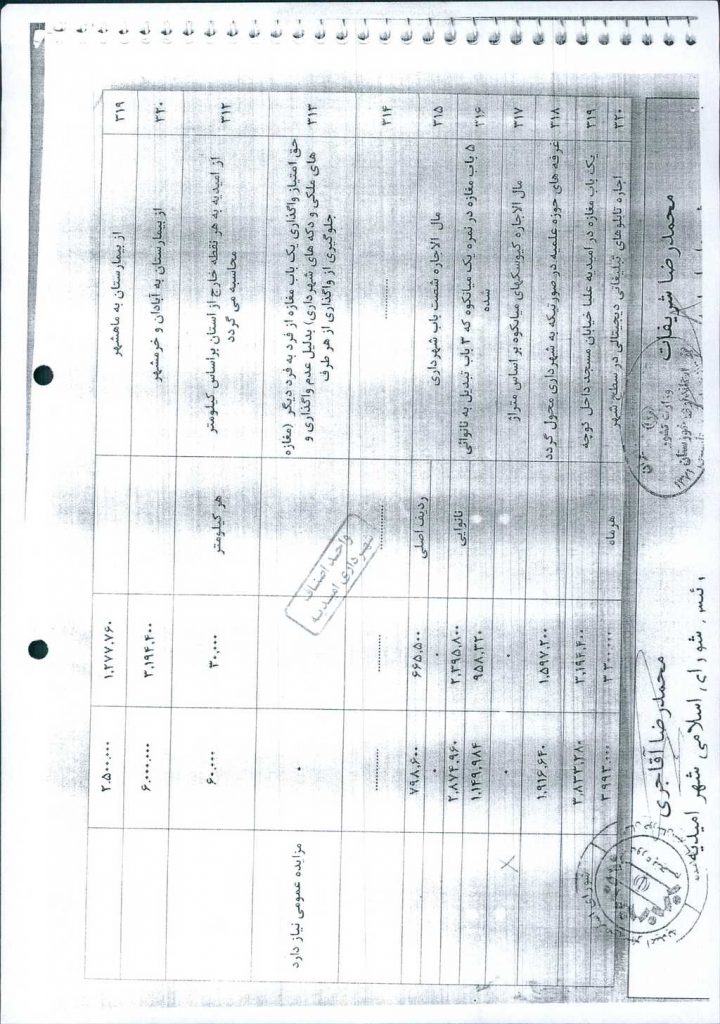 ۳۱۹ از بیمارستان به ماهشهر ۱,۲۷۷,۷۶۰ ۲,۵۰۰,۰۰۰
۳۲۰ از بیمارستان به آبادان و خرمشهر ۳,۱۹۴,۴۰۰ ۶,۰۰۰,۰۰۰
۳۱۲ از امیدیه به هر نقطه خارج از استان براساس کیلومتر هر کیلومتر ۳۰,۰۰۰ ۶۰,۰۰۰
محاسبه می گردد
۳۱۳ حق امتیاز واگذاری یک باب مغازه از فرد به فرد دیگر (مغازه ۰ مزایده عمومی نیاز دارد
های ملکی و دکه های شهرداری) بدلیل عدم واگذاری و
جلوگیری از واگذاری از هر طرف
واحد اصناف
شهرداری امیدیه
۳۱۴
۳۱۵ مال الاجاره شصت باب شهرداری ردیف اصلی ۶۶۵,۵۰۰ ۷۹۸,۶۰۰
۳۱۶ ۵ باب مغازه در نمره یک میانکوه که ۳ باب تبدیل به نانوائی نانوایی ۲,۳۹۵,۸۰۰ ۲,۸۷۴,۹۶۰
شده ۹۵۸,۳۲۰ ۱,۱۴۹,۹۸۴
۳۱۷ مال الاجاره کیوسکهای میانکوه بر اساس متراژ ۰ ۰
۳۱۸ غرفه های حوزه علمیه در صورتیکه به شهرداری محول گردد ۱,۵۹۷,۲۰۰ ۱,۹۱۶,۶۴۰
۳۱۹ یک باب مغازه در امیدیه علیا خیابان مسجد داخل کوچه ۳,۱۹۴,۴۰۰ ۳,۸۳۳,۲۸۰
۳۲۰ اجاره تابلوهای تبلیغاتی دیجیتالی در سطح شهر هر ماه ۳,۹۹۳,۰۰۰
محمدرضا شریفات
وزارت کشور
محمدرضا آقاجری
رئیس شورای اسلامی شهر امیدیه